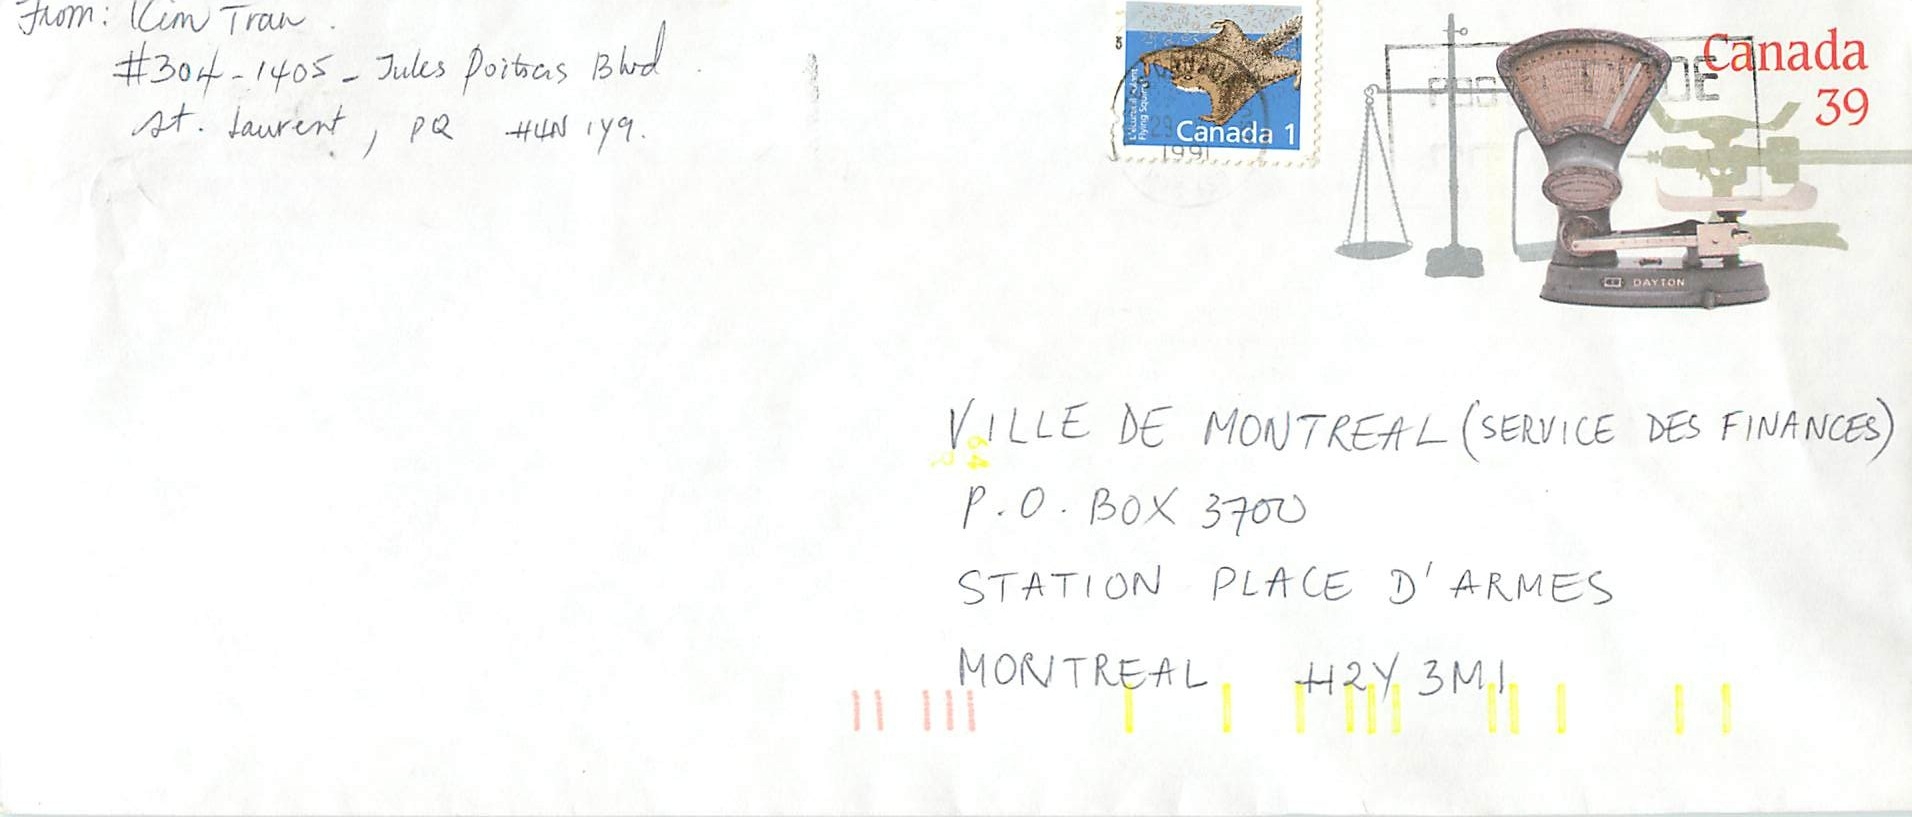 From: Kim Tran
#304-1405- Jules Poitras Blvd
St. Laurent, PQ H4N 1Y9.
L'écureuil volant
Flying Squirrel
Canada 1
29
1991
POS DE
Canada
39
DAYTON
VILLE DE MONTREAL (SERVICE DES FINANCES)
P.O. BOX 3700
STATION PLACE D'ARMES
MONTREAL H2Y 3M1